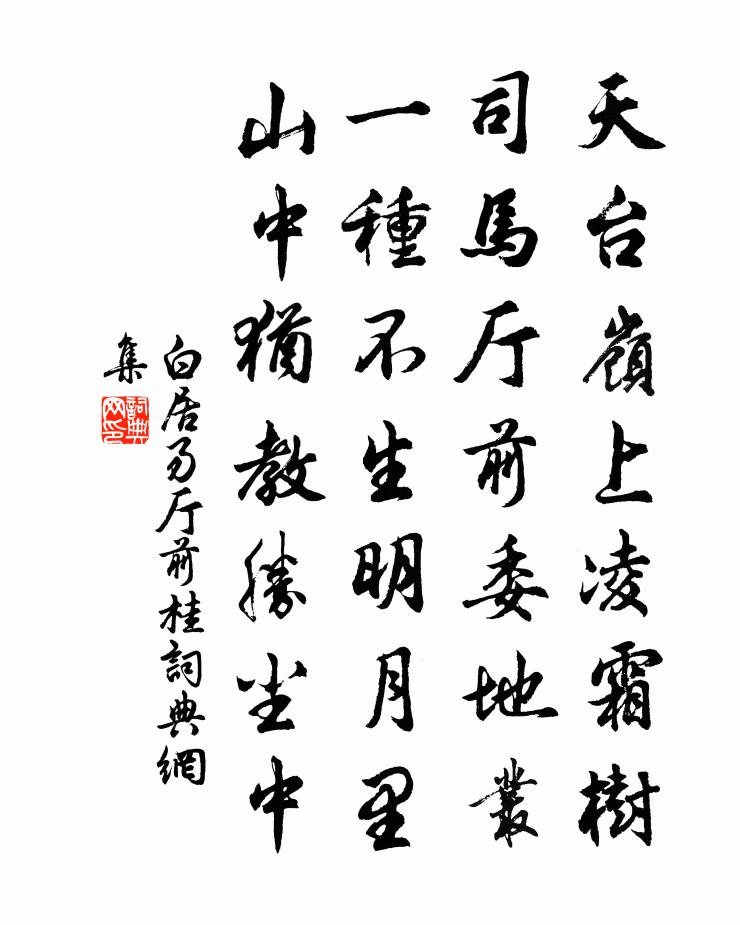 天台嶺上凌霜樹
司馬厅前委地叢
一種不生明月里
山中猶教勝尘中
白居易厅前桂詞典網
集
詞典网印